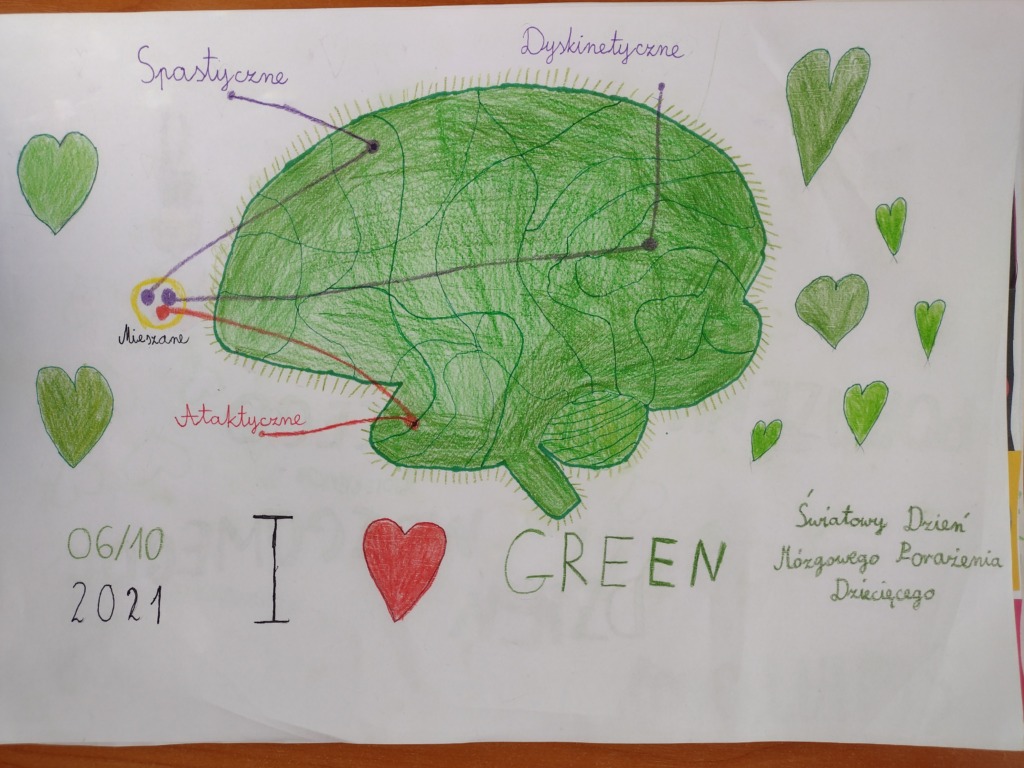 Spastyczne
Dyskinetyczne
Mieszane
Ataktyczne
06/10
2021
I
GREEN
Światowy Dzień
Mózgowego Porażenia
Dziecięcego